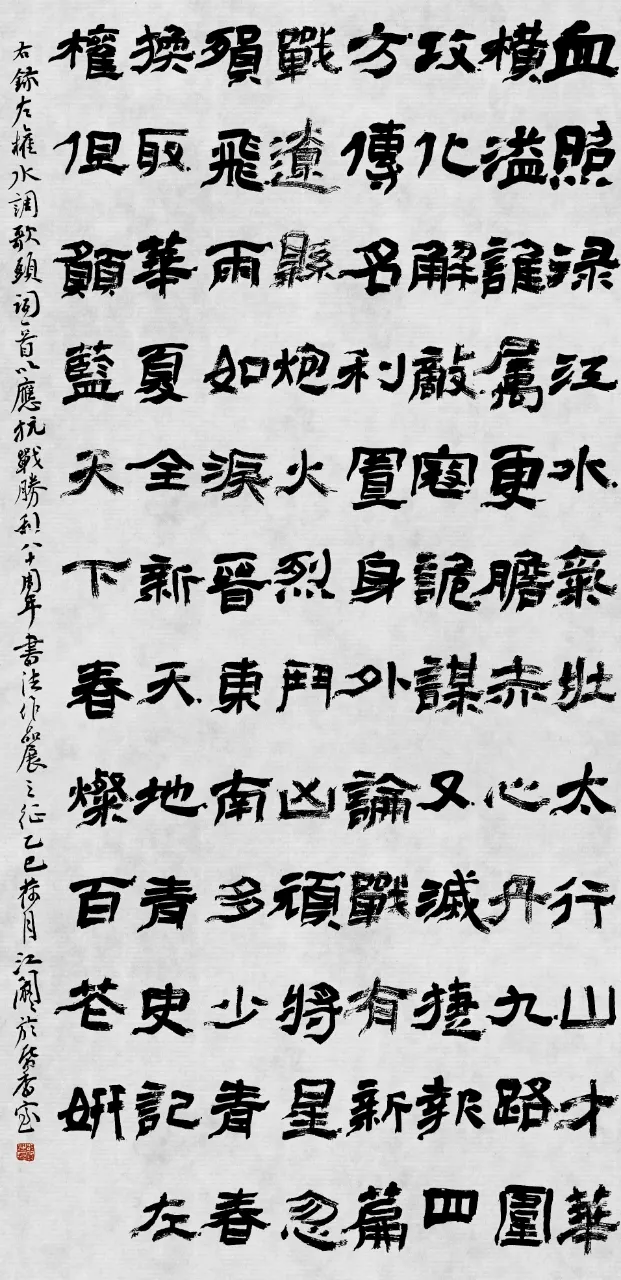 血照渌江水氣壯太行山才華
橫溢誰属更膽赤心丹九路圍
攻化解敵寇詭謀又滅捷報四
方傳名利置身外論戰有新篇
戰遼縣炮火烈鬥凶頑將星忽
殞飛雨如淚晉東南多少青春
換取華夏全新天地青史記左
權但願藍天下春燦百花妍
右錄左權水調歌頭詞一首以應抗戰勝利八十周年書法作品展之征乙巳荷月江於香室